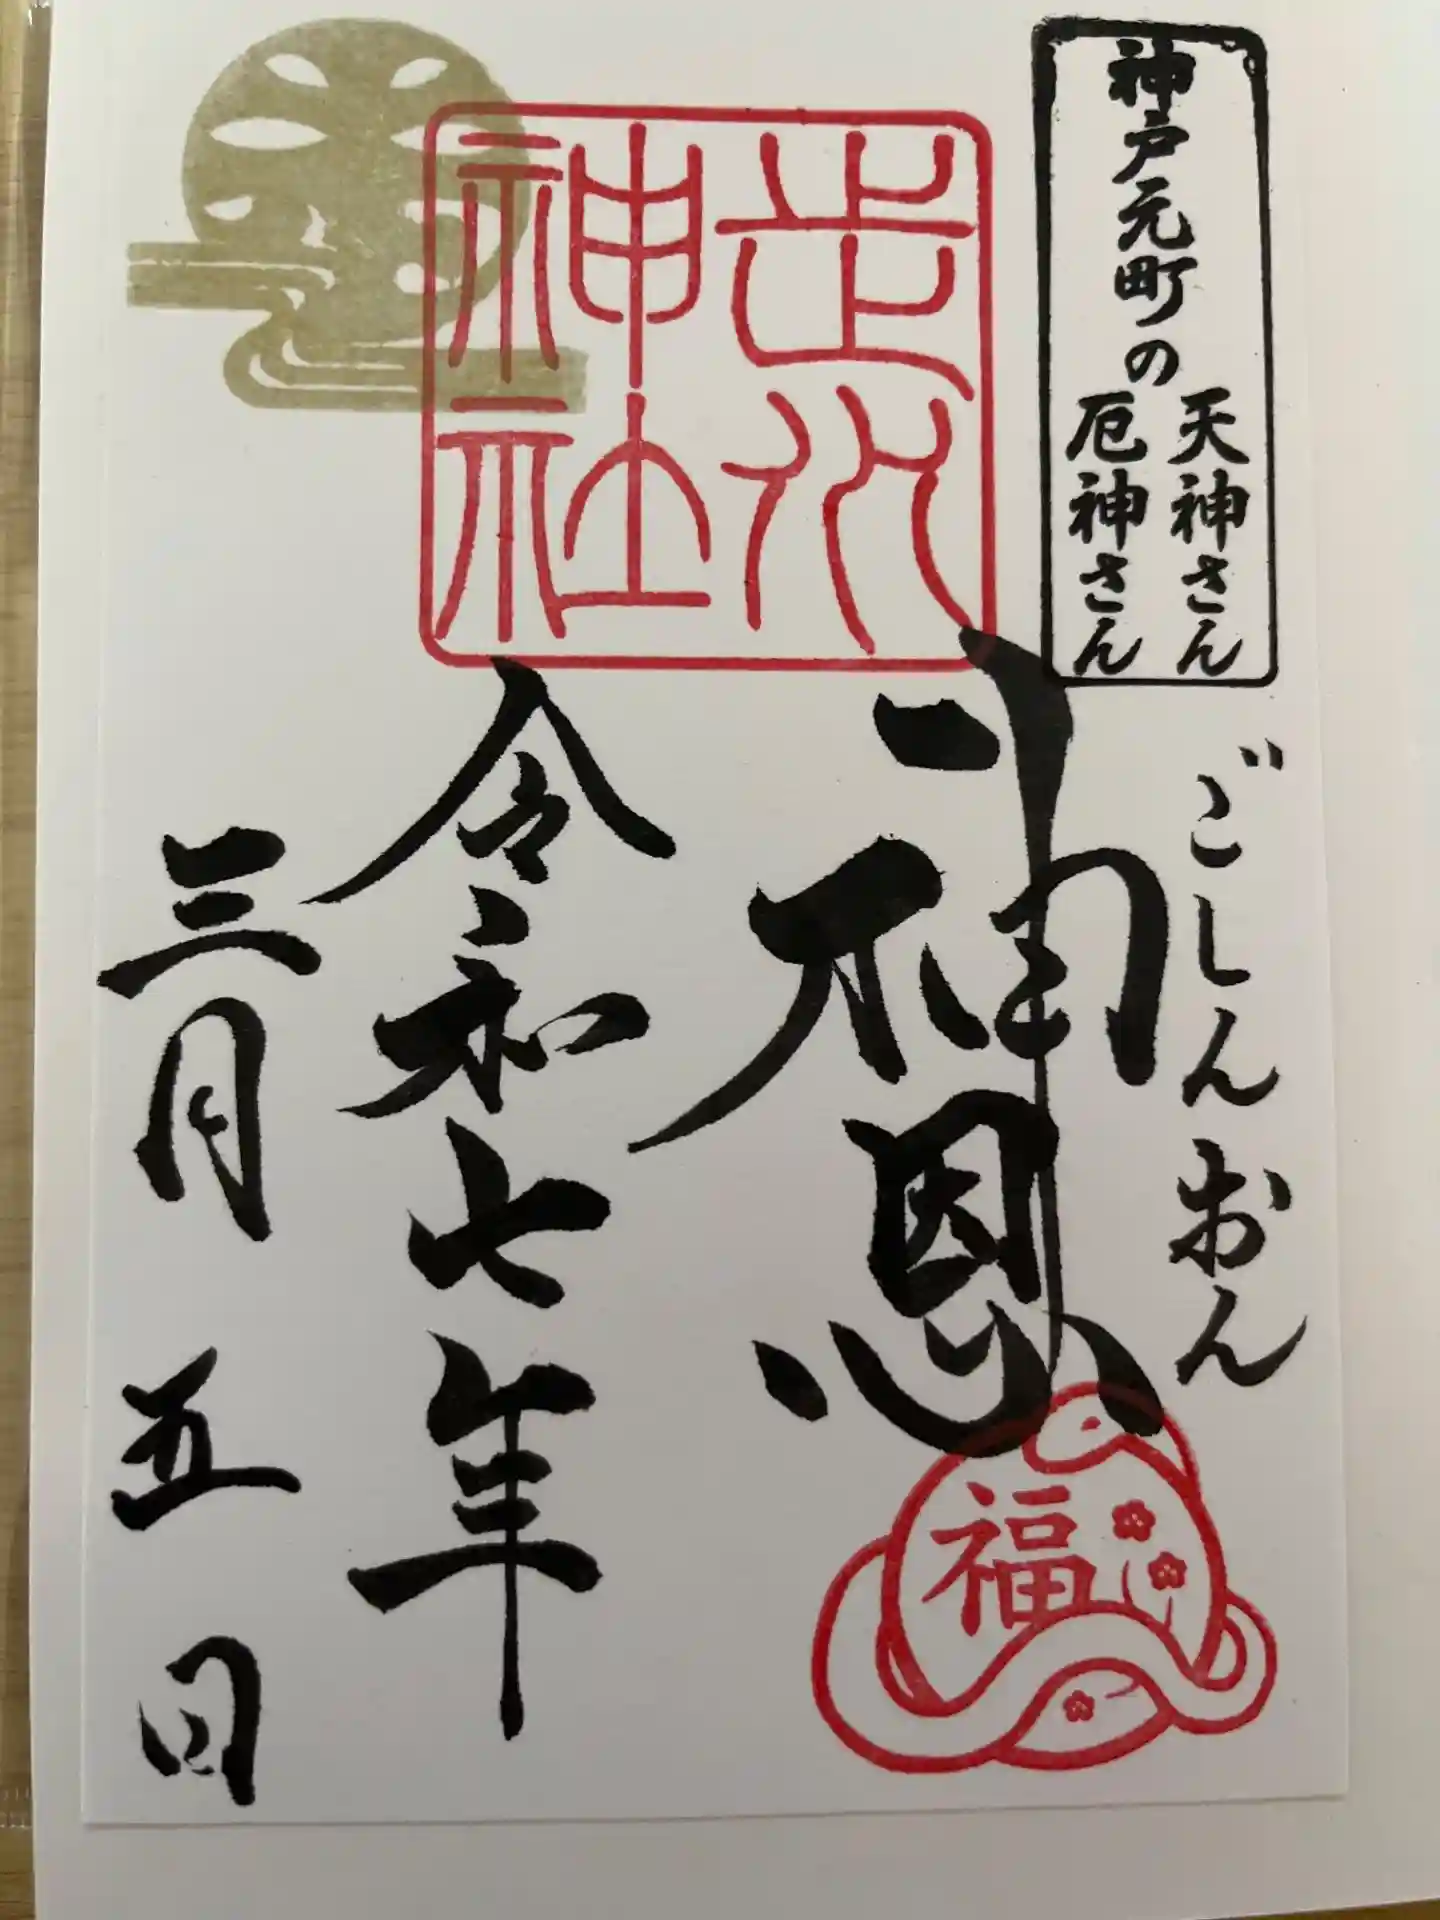 神戸元町の
天神さん
厄神さん
ごしんおん
走水
神社
神恩
福
令和七年
三月五日